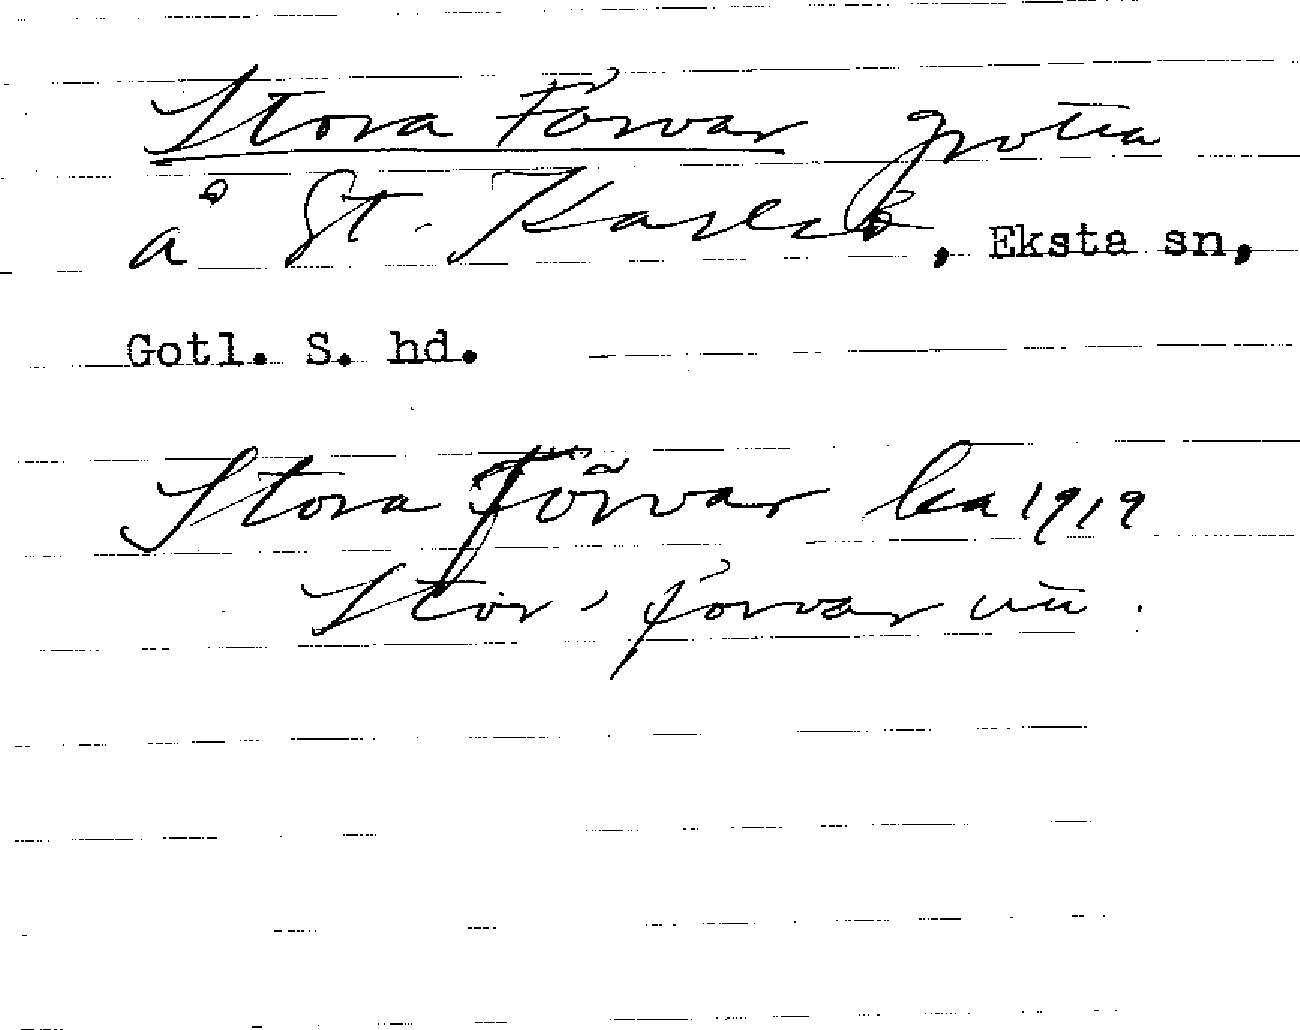 Stora Förvar grotta
å St. Karlsö, Eksta sn,
Gotl. S. hd.
Stora Förvar ka 1919
Stor, förvar uu.